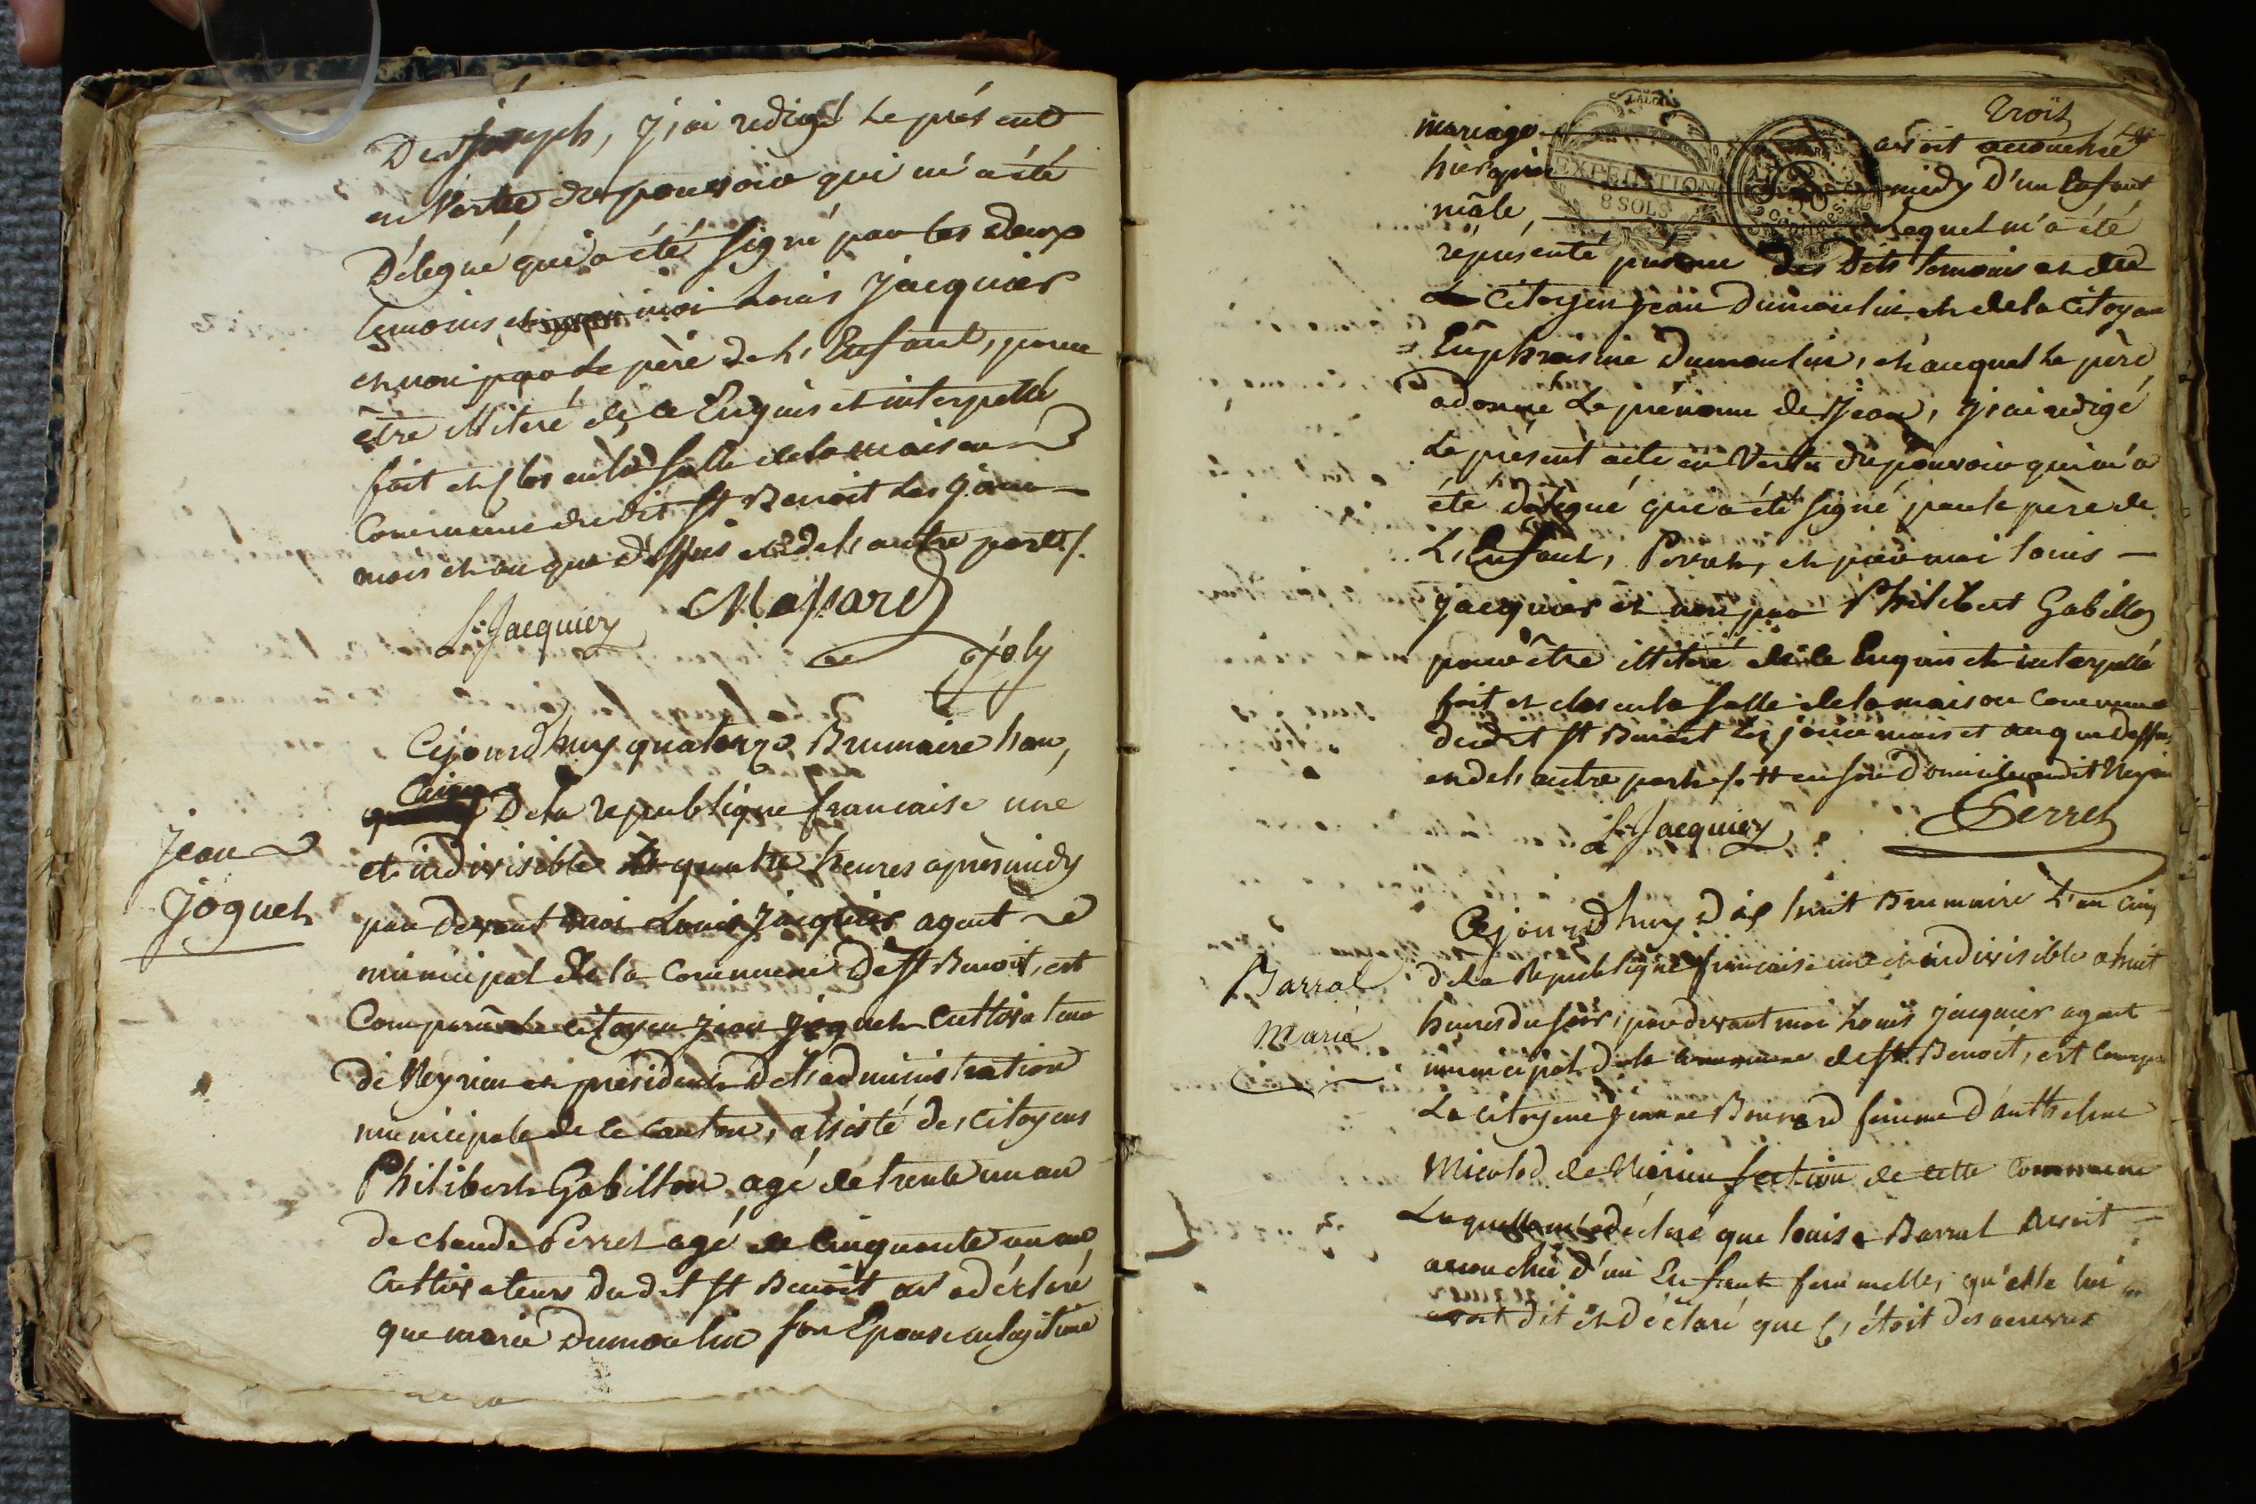 De Joseph, j'ai redigé le présent
en Vertu des pouvoir qui m'a été
Délegué qui a été signé par les deux
temoins et par moi Louis Jacquier
et non par le père de l'Enfant, pour
être illiteré de ce Enquis et interpellé
fait et clos en la salle de la maison
Commune du dit St Benoit les jour
mois et an que dessus et de l'autre part /.
Ls Jacquier Massard
Joly
Cejourdhuy quatorze Brumaire l'an
Cinq
De la republique francaise une
et indivisible quatre heures après midy
Jean
Joguet
par devant moi Louis Jacquier agent
municipal de la Commune De St Benoit, est
Comparu le citoyen jean joguet Cultivateur
de Neyrieu et président de l'administration
municipale de ce Canton, assisté des citoyens
Philibert Gabillon agé de trente un an
de claude Perret agé de Cinquante un an
Cultivateurs du dit St Benoit a déclaré
que marie Dumoulin son Epouse en legitime
trois
mariage avoit accouché
hier après midy D'un Enfant
mâle, Lequel m'a été
EXPEDITION
8 SOLS
représenté présence des dits temoins et de
Citoyen jean Dumoulin et de la Citoyen
Euphrosine Dumoulin, et auquel le père
a donné le prénom de Jean, j'ai redigé
Le présent acte en Vertu du pouvoir qui m'a
été délegué qui a été signé par le père de
L'Enfant, Perret, et par moi Louis
jacquier et non par Philibert Gabillon
pour être illiteré de ce Enquis et interpellé
fait et clos en la salle de la maison Commune
dudit St Benoit les jour mois et an que dessus
en de l'autre part /. # en son domicile au dit Neyrieu
Ls Jacquier Perret
Cejourdhuy dix huit Brumaire L'an Cinq
Barral
Marie
de la Republique francaise une et indivisible a huit
heures du soir, par devant moi Louis jacquier agent
municipal de la commune de St Benoit, est Comparu
La citoyene jeanne Brunard femme d'anthelme
Micolod de Nérieu section de cette Commune
Laquelle m'a déclaré que louise Barral avoit
accouché d'un Enfant femmelle, qu'elle lui
avoit dit et déclaré que c'étoit des oeuvres